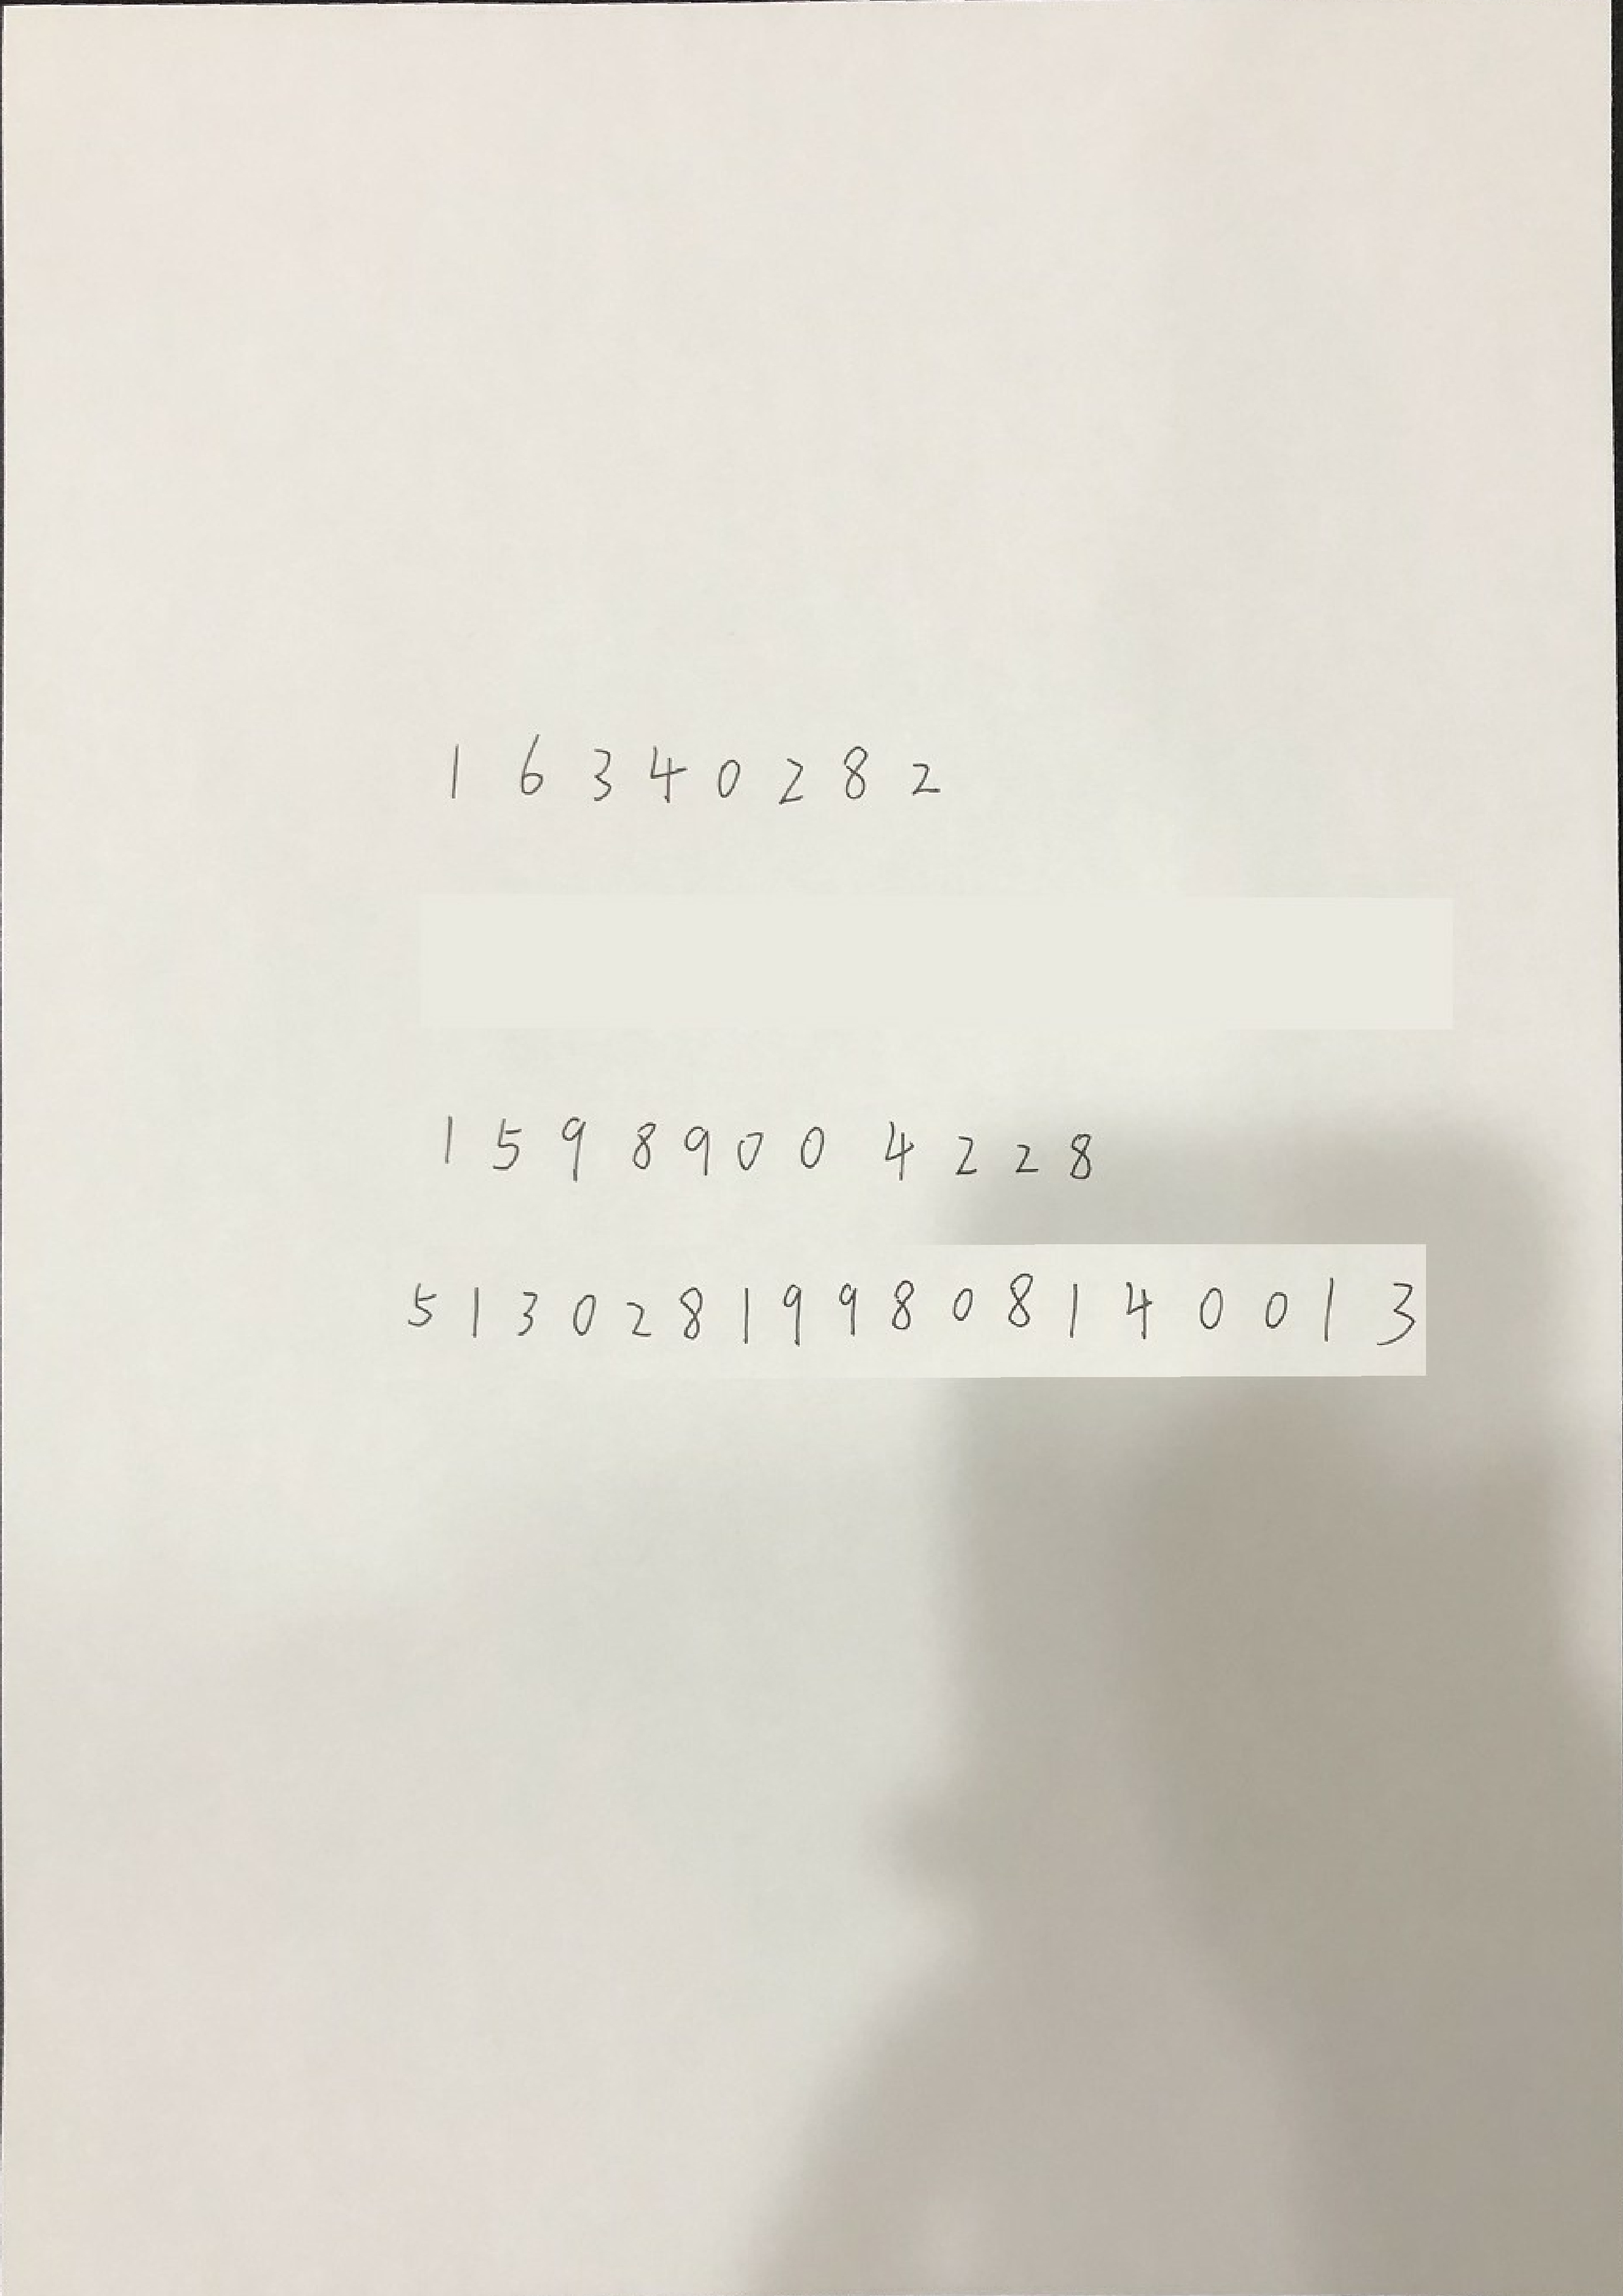 16340282
15989004228
513028199808140013